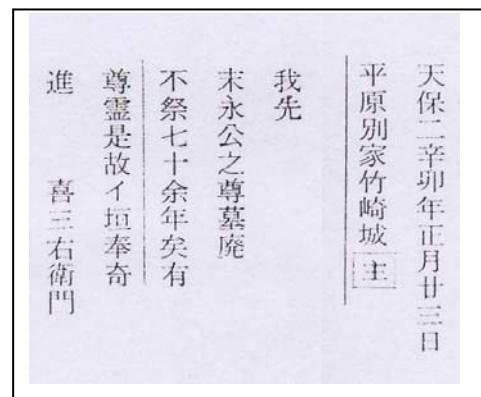 天保二辛卯年正月廿三日
平原別家竹崎城主
我先
末永公之尊墓廃
不祭七十余年矣有
尊霊是故イ垣奉奇
進　喜三右衛門